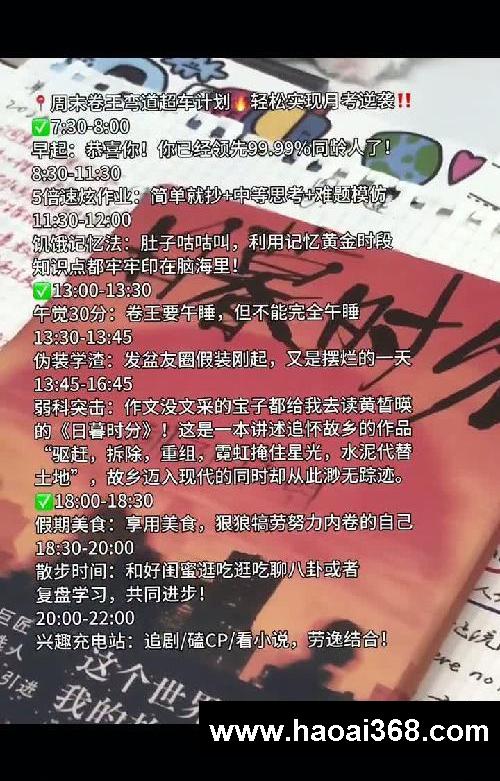 📍周末卷王弯道超车计划🔥轻松实现月考逆袭‼️
✅7:30-8:00
早起：恭喜你！你已经领先99.99%同龄人了！
8:30-11:30
5倍速炫作业：简单就抄+中等思考+难题模仿
11:30-12:00
饥饿记忆法：肚子咕咕叫，利用记忆黄金时段
知识点都牢牢印在脑海里！
✅13:00-13:30
午觉30分：卷王要午睡，但不能完全午睡
13:30-13:45
伪装学渣：发盆友圈假装刚起，又是摆烂的一天
13:45-16:45
弱科突击：作文没文采的宝子都给我去读黄皙暎
的《日暮时分》！这是一本讲述追怀故乡的作品
“驱赶，拆除，重组，霓虹掩住星光，水泥代替
土地”，故乡迈入现代的同时却从此渺无踪迹。
✅18:00-18:30
假期美食：享用美食，狠狠犒劳努力内卷的自己
18:30-20:00
散步时间：和好闺蜜逛吃逛吃聊八卦或者
复盘学习，共同进步！
20:00-22:00
兴趣充电站：追剧/磕CP/看小说，劳逸结合！
日暮时分
巨匠
选人
引进
这个世界
我的故
www.haoai368.com